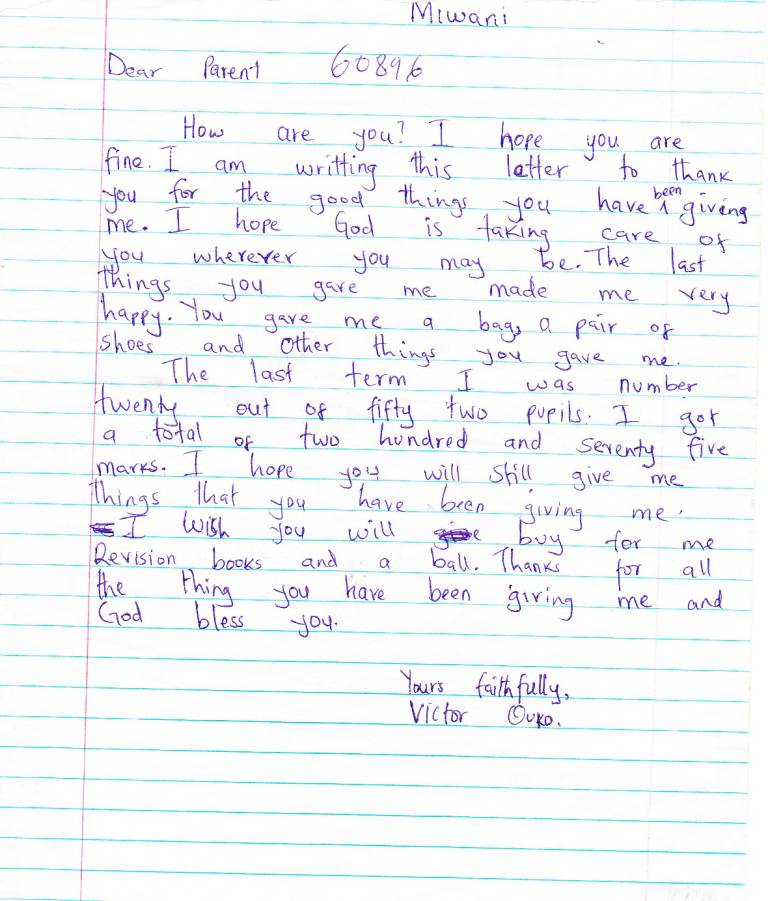 Miwani
Dear Parent 60896
How are you? I hope you are
fine. I am writting this letter to thank
you for the good things you have been giving
me. I hope God is taking care of
you wherever you may be. The last
things you gave me made me very
happy. You gave me a bag, a pair of
shoes and other things you gave me.
The last term I was number
twenty out of fifty two pupils. I got
a total of two hundred and seventy five
marks. I hope you will still give me
things that you have been giving me.
I wish you will buy for me
Revision books and a ball. Thanks for all
the thing you have been giving me and
God bless you.
Yours faithfully,
Victor Ouko.